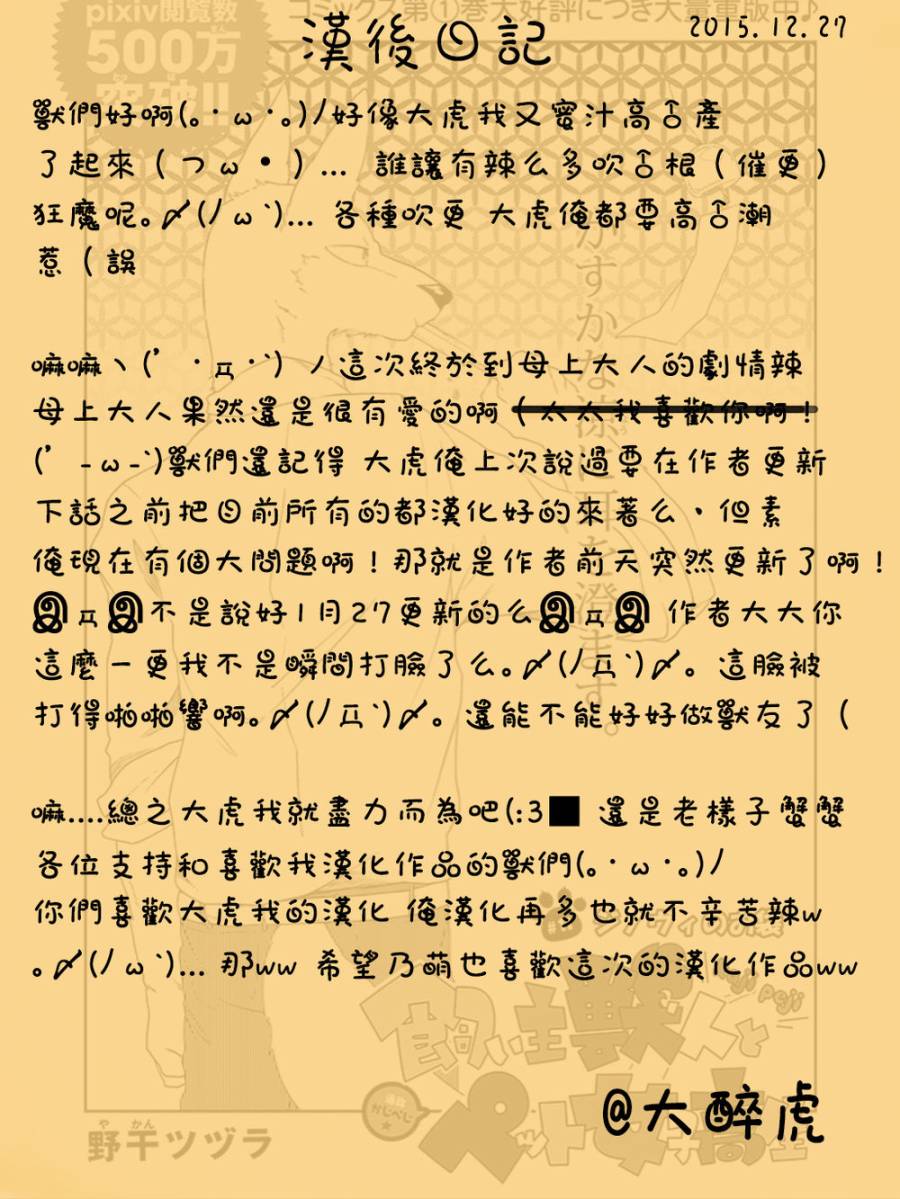 pixiv閲覧数
500万
突破!!
コミックス第①巻大好評につき大量重版中♪
漢後日記
2015.12.27
獸們好啊(｡･ω･｡)ﾉ好像大虎我又蜜汁高↑產
了起來（つω•）... 誰讓有辣么多吹↑根（催更）
狂魔呢。〆(ﾉω`)... 各種吹更 大虎俺都要高↑潮
惹（誤
嘛嘛ヽ(′･д･`)ノ這次終於到母上大人的劇情辣
母上大人果然還是很有愛的啊（太太我喜歡你啊！
(′-ω-`)獸們還記得 大虎俺上次說過要在作者更新
下話之前把目前所有的都漢化好的來著么、但素
俺現在有個大問題啊！那就是作者前天突然更新了啊！
இдஇ不是說好1月27更新的么இдஇ 作者大大你
這麼一更我不是瞬間打臉了么。〆(ﾉд`)〆。這臉被
打得啪啪響啊。〆(ﾉд`)〆。還能不能好好做獸友了（
嘛....總之大虎我就盡力而為吧(:3■ 還是老樣子蟹蟹
各位支持和喜歡我漢化作品的獸們(｡･ω･｡)ﾉ
你們喜歡大虎我的漢化 俺漢化再多也就不辛苦辣w
。〆(ﾉω`)... 那ww 希望乃萌也喜歡這次的漢化作品ww
飼い主獣人と
ペット女子高生
野干ツヅラ
やかん
@大醉虎